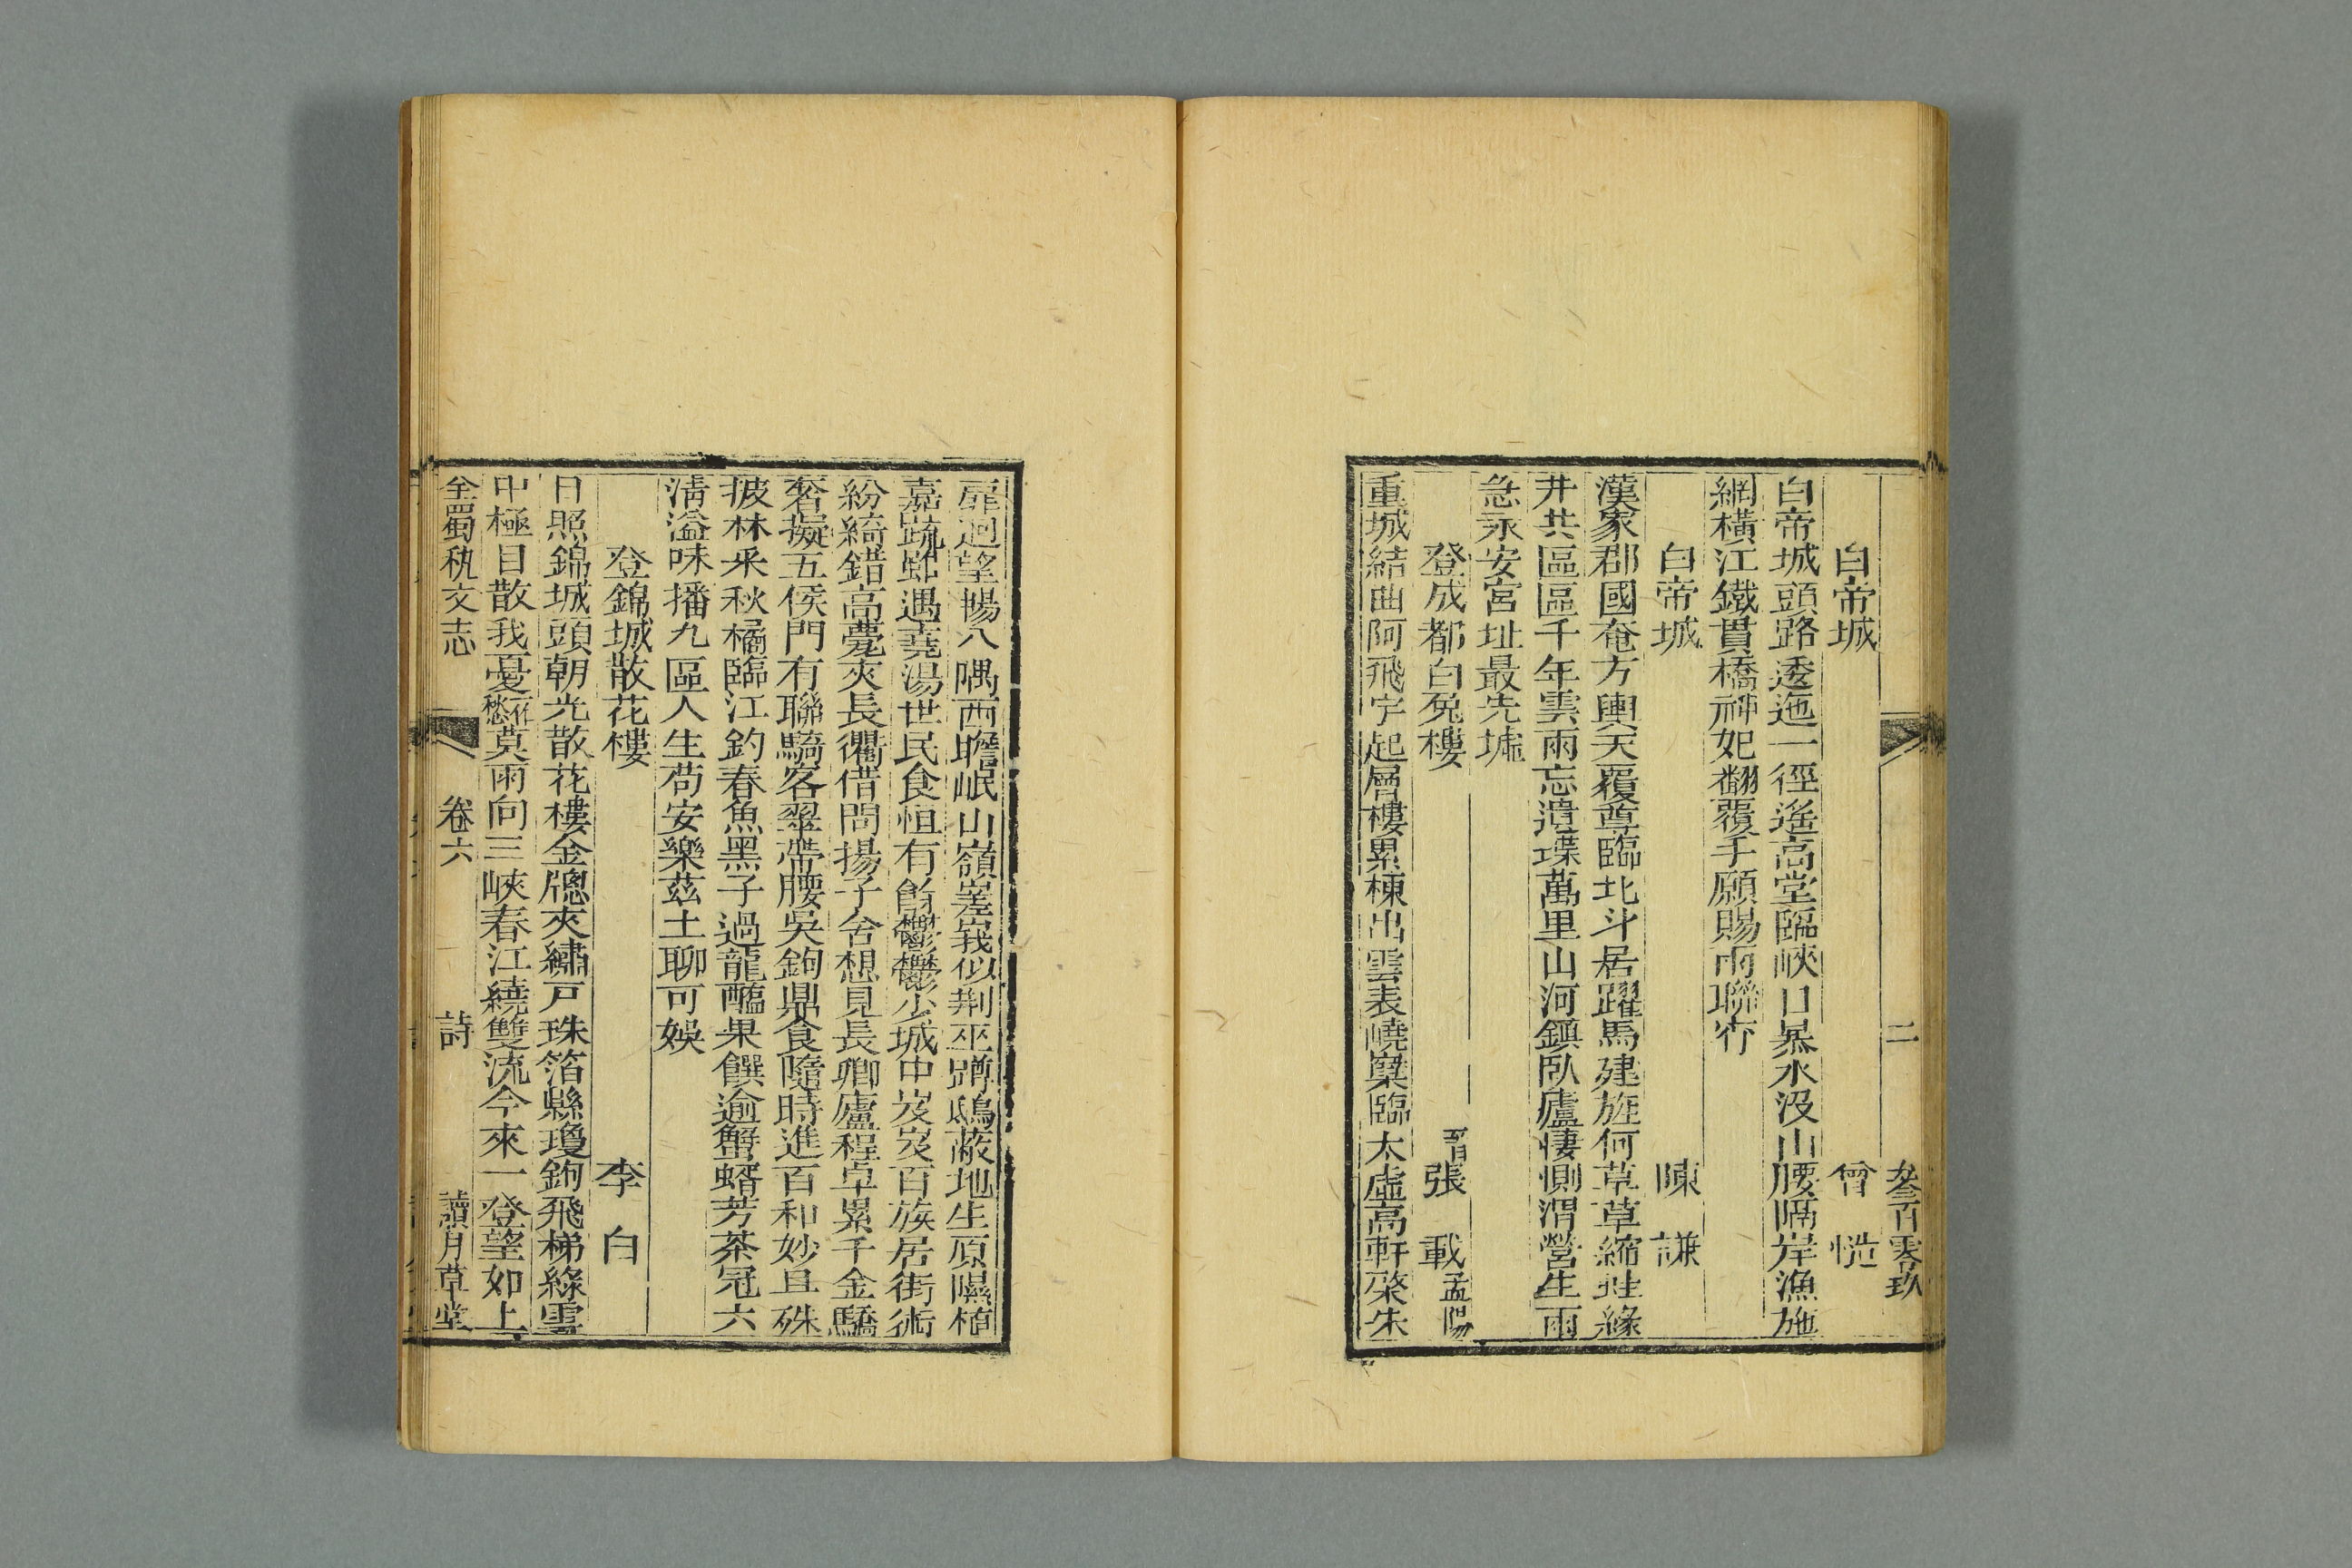 二 叁百零玖
白帝城 曾慥
白帝城頭路透迤一徑遙高堂臨峽口暴水没山腰隔岸漁施
網橫江鐵貫橋神妃翻覆手願賜雨聯宵
白帝城 陳謙
漢家郡國奄方輿天覆尊臨北斗居躍馬建旌何草草縮蛙緣
井共區區千年雲雨忘遺堞萬里山河鎮臥廬悽惻渭營生雨
急永安宮址最先墟
登成都白兔樓 晋張載孟陽
重城結曲阿飛宇起層樓累棟出雲表嶢櫱臨太虛高軒棨朱
扉迴望揚八隅西瞻岷山嶺嵳峩似荆巫蹲鴟蔽地生原隰植
嘉蔬雖遇堯湯世民食恒有餘鬱鬱少城中岌岌百族居街術
紛綺錯高甍夾長衢借問揚子舍想見長卿廬程卓累千金驕
奢擬五侯門有聯騎客翠帶腰吳鉤鼎食隨時進百和妙且殊
披林采秋橘臨江釣春魚黑子過龍醢果饌逾蟹蝑芳茶冠六
清溢味播九區人生苟安樂茲土聊可娛
登錦城散花樓 李白
日照錦城頭朝光散花樓金牕夾繡戸珠箔縣瓊鉤飛梯綠雲
中極目散我憂一作愁莫雨向三峽春江繞雙流今來一登望如上
全蜀秇文志 卷六 詩 讀月草堂